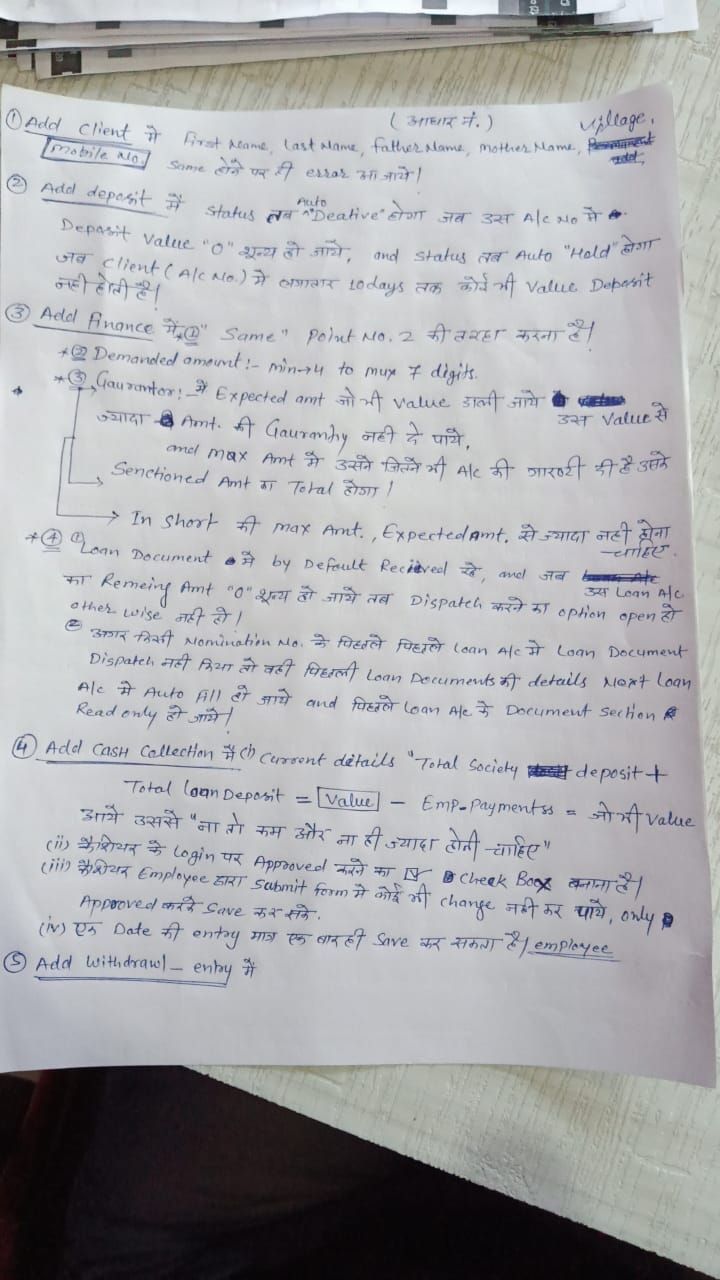 ① Add Client में First Name, Last Name, Father Name, Mother Name, (आधार नं.) village,
Mobile No. Same होने पर ही error आ जाये।
② Add deposit में Status तब Auto "Deative" होगा जब उस A/c No में
Deposit Value "0" शून्य हो जाये, and status तब Auto "Hold" होगा
जब Client (A/c No.) में लगातार 10days तक कोई भी Value Deposit
नही होती है।
③ Add Finance में, ① "Same" Point No. 2 की तरहा करना है।
* ② Demanded amount:- min→4 to mux 7 digits.
* ③ Gaurantor:- में Expected amt जो भी Value डाली जाये उस Value से
ज्यादा Amt. की Gauranhy नही दे पाये,
and max Amt में उसने जितने भी A/c की गारण्टी की है उसके
Senctioned Amt का Total होगा।
→ In Short की max Amt., Expected Amt. से ज्यादा नही होना
चाहिए.
* ④ ① Loan Document में by Default Recieved रहे, and जब उस Loan A/c
का Remeing Amt "0" शून्य हो जाये तब Dispatch करने का option open हो
other wise नही हो।
② अगर किसी Nomination No. के पिछले पिछले Loan A/c में Loan Document
Dispatch नही किया तो वही पिछली Loan Documents की details Next Loan
A/c में Auto fill हो जाये and पिछले Loan A/c के Document Section
Read only हो जाये।
④ Add Cash Collection में (i) Current details "Total Society deposit +
Total Loan Deposit = Value - Emp-Payments = जो भी Value
आये उससे "ना तो कम और ना ही ज्यादा होनी चाहिए"
(ii) कैशियर के Login पर Approved करने का ☑ Check Box बनाना है।
(iii) कैशियर Employee द्वारा Submit form में कोई भी change नही कर पाये, only
Approved करके Save कर सके.
(iv) एक Date की entry मात्र एक बार ही Save कर सकता है। employee
⑤ Add Withdrawl - entry में